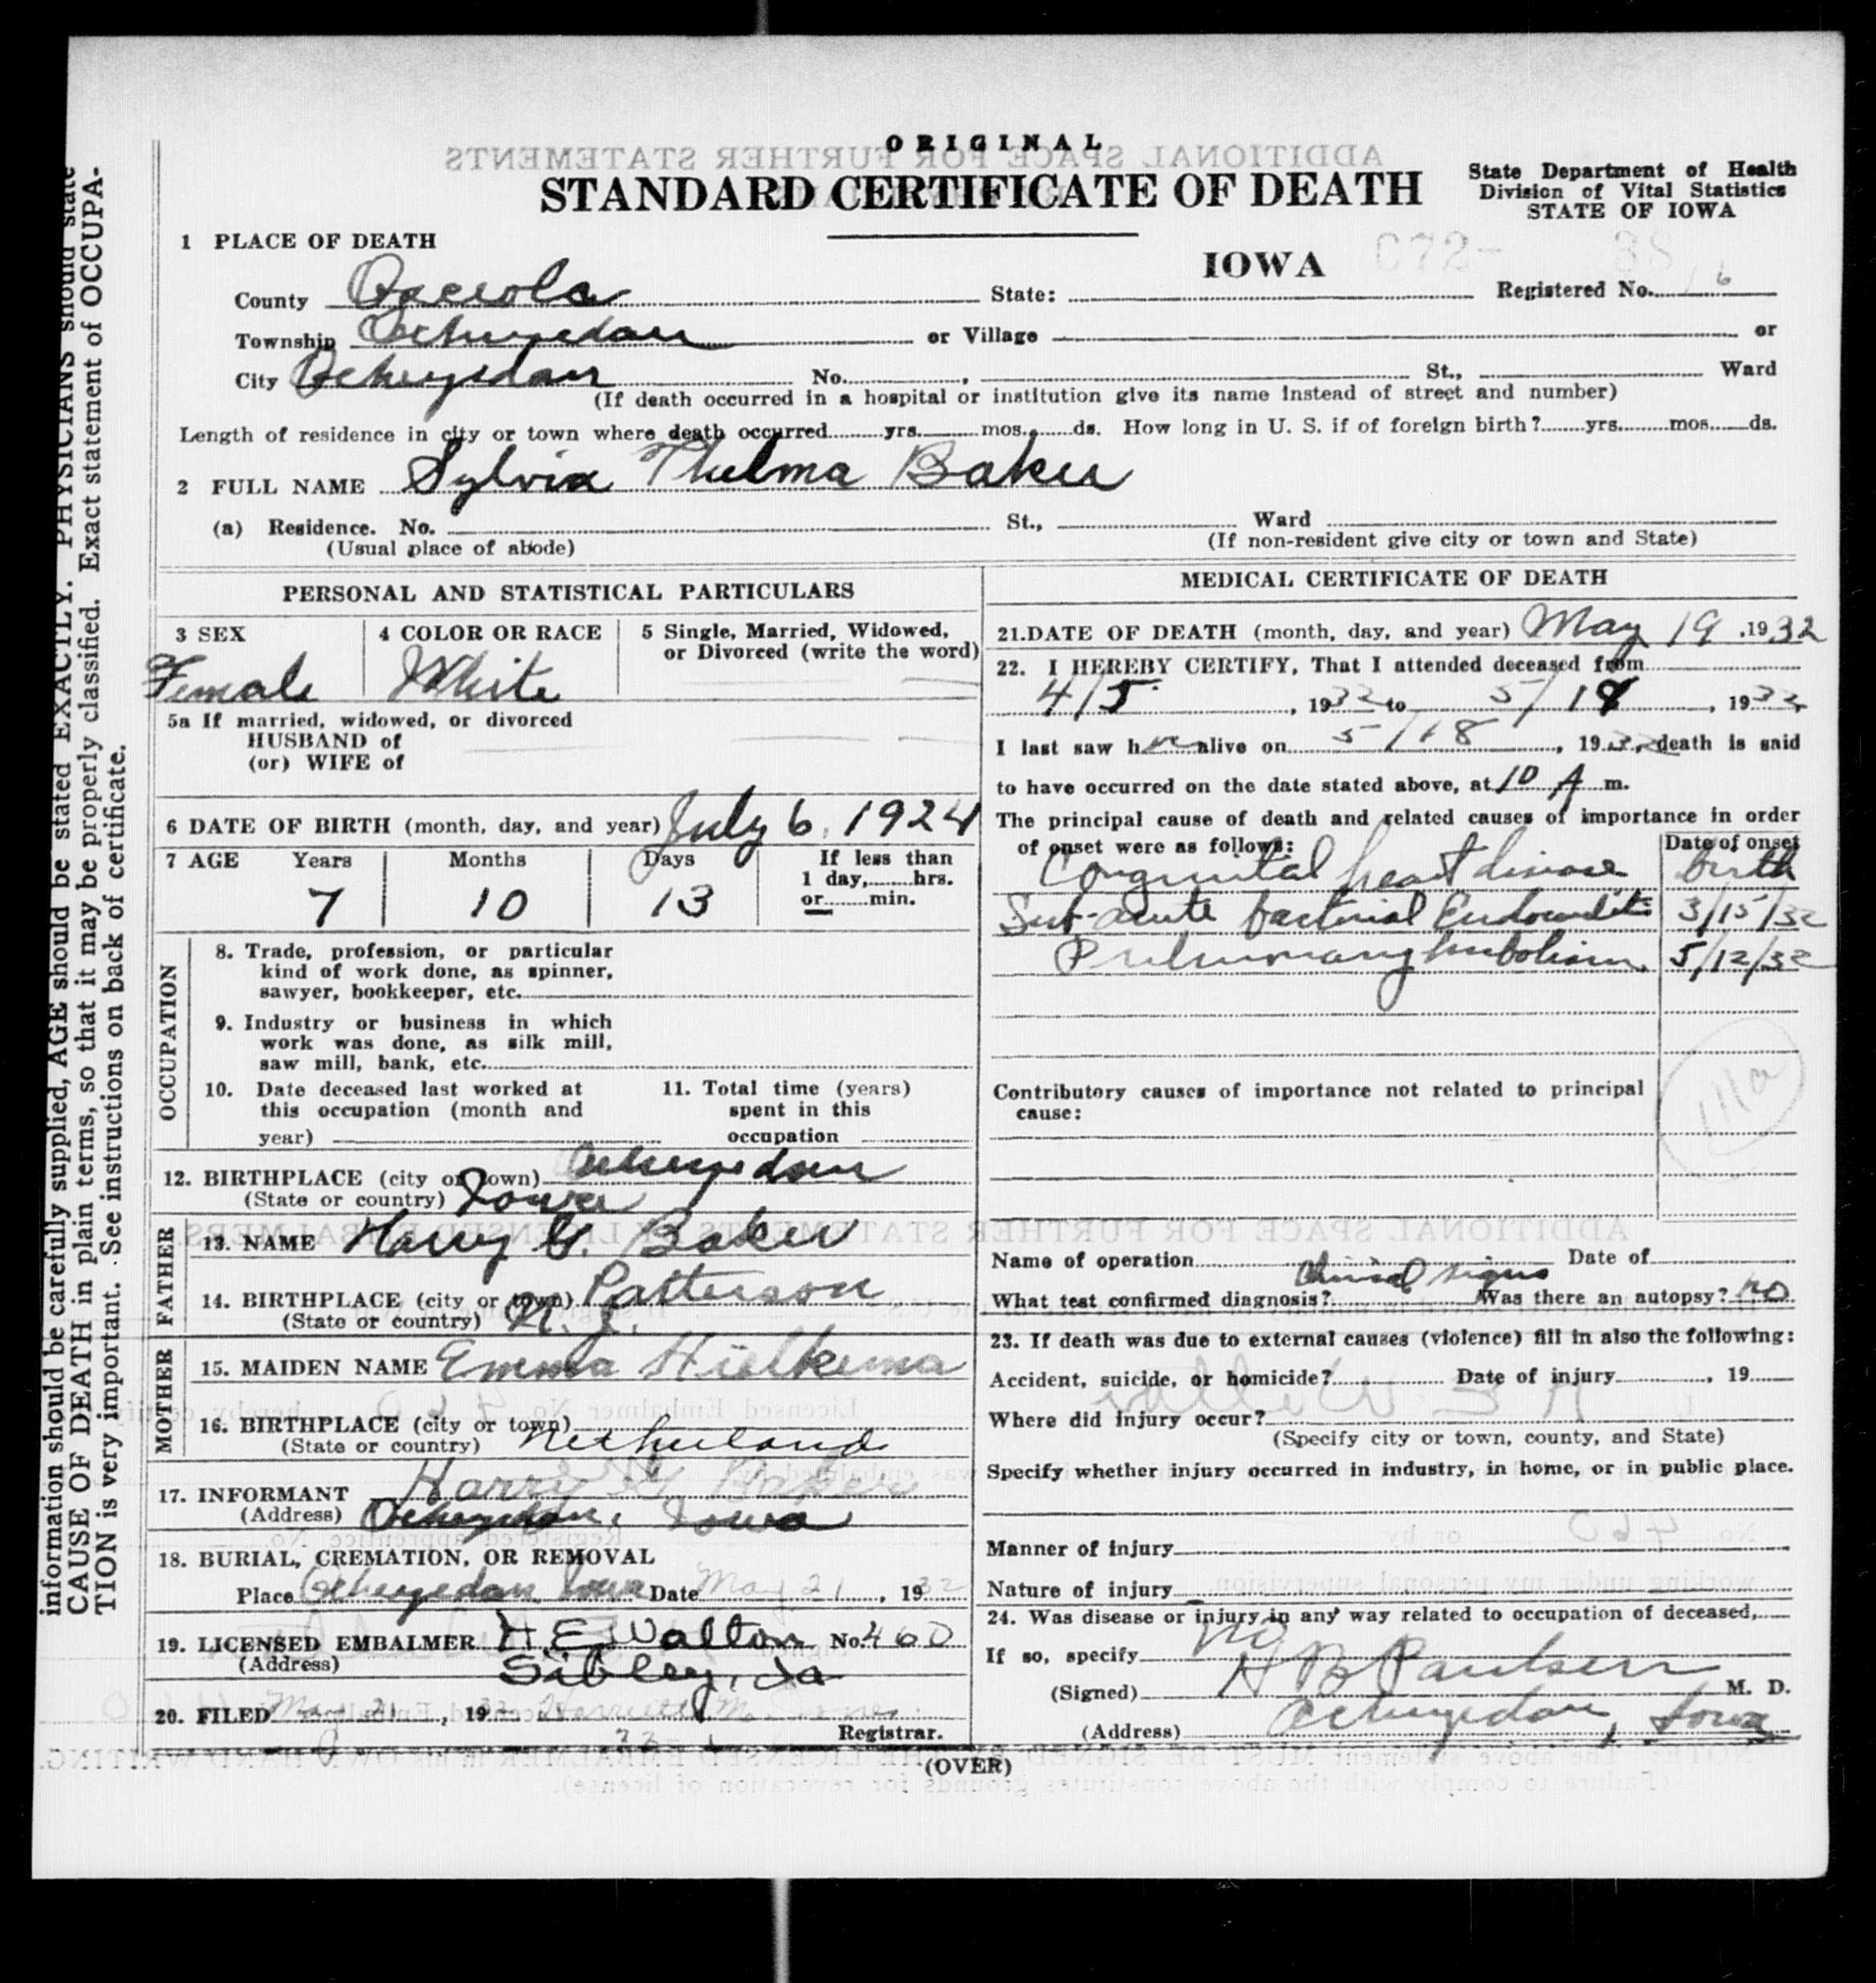 ORIGINAL
STANDARD CERTIFICATE OF DEATH
State Department of Health
Division of Vital Statistics
STATE OF IOWA
1 PLACE OF DEATH
IOWA
County Osceola State: Registered No. 16
Township Ocheyedan or Village or
City Ocheyedan No. , St., Ward
(If death occurred in a hospital or institution give its name instead of street and number)
Length of residence in city or town where death occurred yrs. mos. ds. How long in U. S. if of foreign birth? yrs. mos. ds.
2 FULL NAME Sylvia Thelma Baker
(a) Residence. No. St., Ward
(Usual place of abode) (If non-resident give city or town and State)
PERSONAL AND STATISTICAL PARTICULARS
3 SEX 4 COLOR OR RACE 5 Single, Married, Widowed,
or Divorced (write the word)
Female White
5a If married, widowed, or divorced
HUSBAND of
(or) WIFE of
6 DATE OF BIRTH (month, day, and year) July 6, 1924
7 AGE Years Months Days If less than
1 day, hrs.
7 10 13 or min.
OCCUPATION
8. Trade, profession, or particular
kind of work done, as spinner,
sawyer, bookkeeper, etc.
9. Industry or business in which
work was done, as silk mill,
saw mill, bank, etc.
10. Date deceased last worked at 11. Total time (years)
this occupation (month and spent in this
year) occupation
12. BIRTHPLACE (city or town) Ocheyedan
(State or country) Iowa
FATHER
13. NAME Harry G. Baker
14. BIRTHPLACE (city or town) Patterson
(State or country) N. J.
MOTHER
15. MAIDEN NAME Emma Hielkema
16. BIRTHPLACE (city or town)
(State or country) Netherland
17. INFORMANT Harry G. Baker
(Address) Ocheyedan, Iowa
18. BURIAL, CREMATION, OR REMOVAL
Place Ocheyedan Iowa Date May 21, 1932
19. LICENSED EMBALMER H.E. Walton No. 460
(Address) Sibley, Ia
20. FILED May 21, 19 32 Harriett M.
Registrar.
MEDICAL CERTIFICATE OF DEATH
21. DATE OF DEATH (month, day, and year) May 19, 1932
22. I HEREBY CERTIFY, That I attended deceased from
4/5, 1932 to 5/19, 1932
I last saw her alive on 5/18, 1932, death is said
to have occurred on the date stated above, at 10 A m.
The principal cause of death and related causes of importance in order
of onset were as follows: Date of onset
Congenital heart disease birth
Sub-acute bacterial Endocarditis 3/15/32
Pulmonary Embolism 5/12/32
Contributory causes of importance not related to principal
cause:
111a
Name of operation Date of
What test confirmed diagnosis? Clinical signs Was there an autopsy? no
23. If death was due to external causes (violence) fill in also the following:
Accident, suicide, or homicide? Date of injury , 19
Where did injury occur?
(Specify city or town, county, and State)
Specify whether injury occurred in industry, in home, or in public place.
Manner of injury
Nature of injury
24. Was disease or injury in any way related to occupation of deceased,
If so, specify no
(Signed) H B Paulsen M. D.
(Address) Ocheyedan, Iowa
(OVER)
information should be carefully supplied, AGE should be stated EXACTLY. PHYSICIANS should state
CAUSE OF DEATH in plain terms, so that it may be properly classified. Exact statement of OCCUPA-
TION is very important. See instructions on back of certificate.